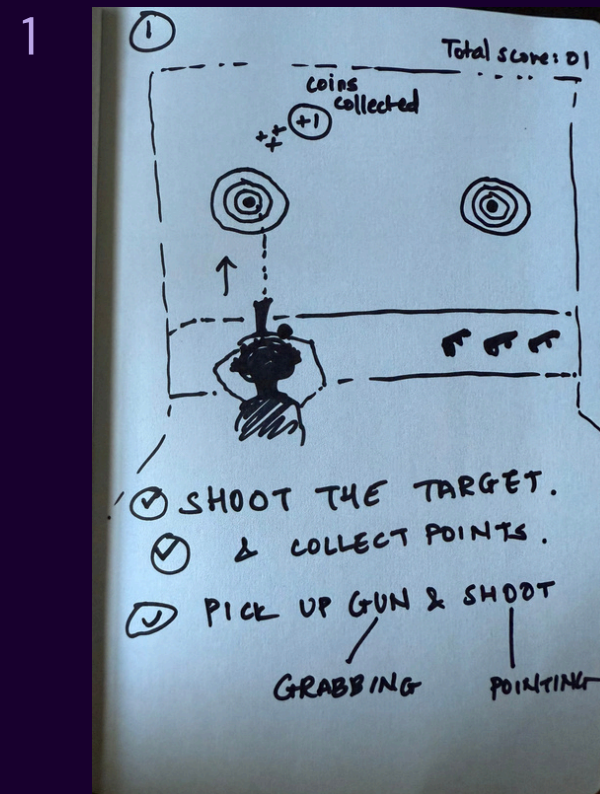 1
1
Total score: 01
coins
collected
+1
SHOOT THE TARGET.
& COLLECT POINTS.
PICK UP GUN & SHOOT
GRABBING POINTING